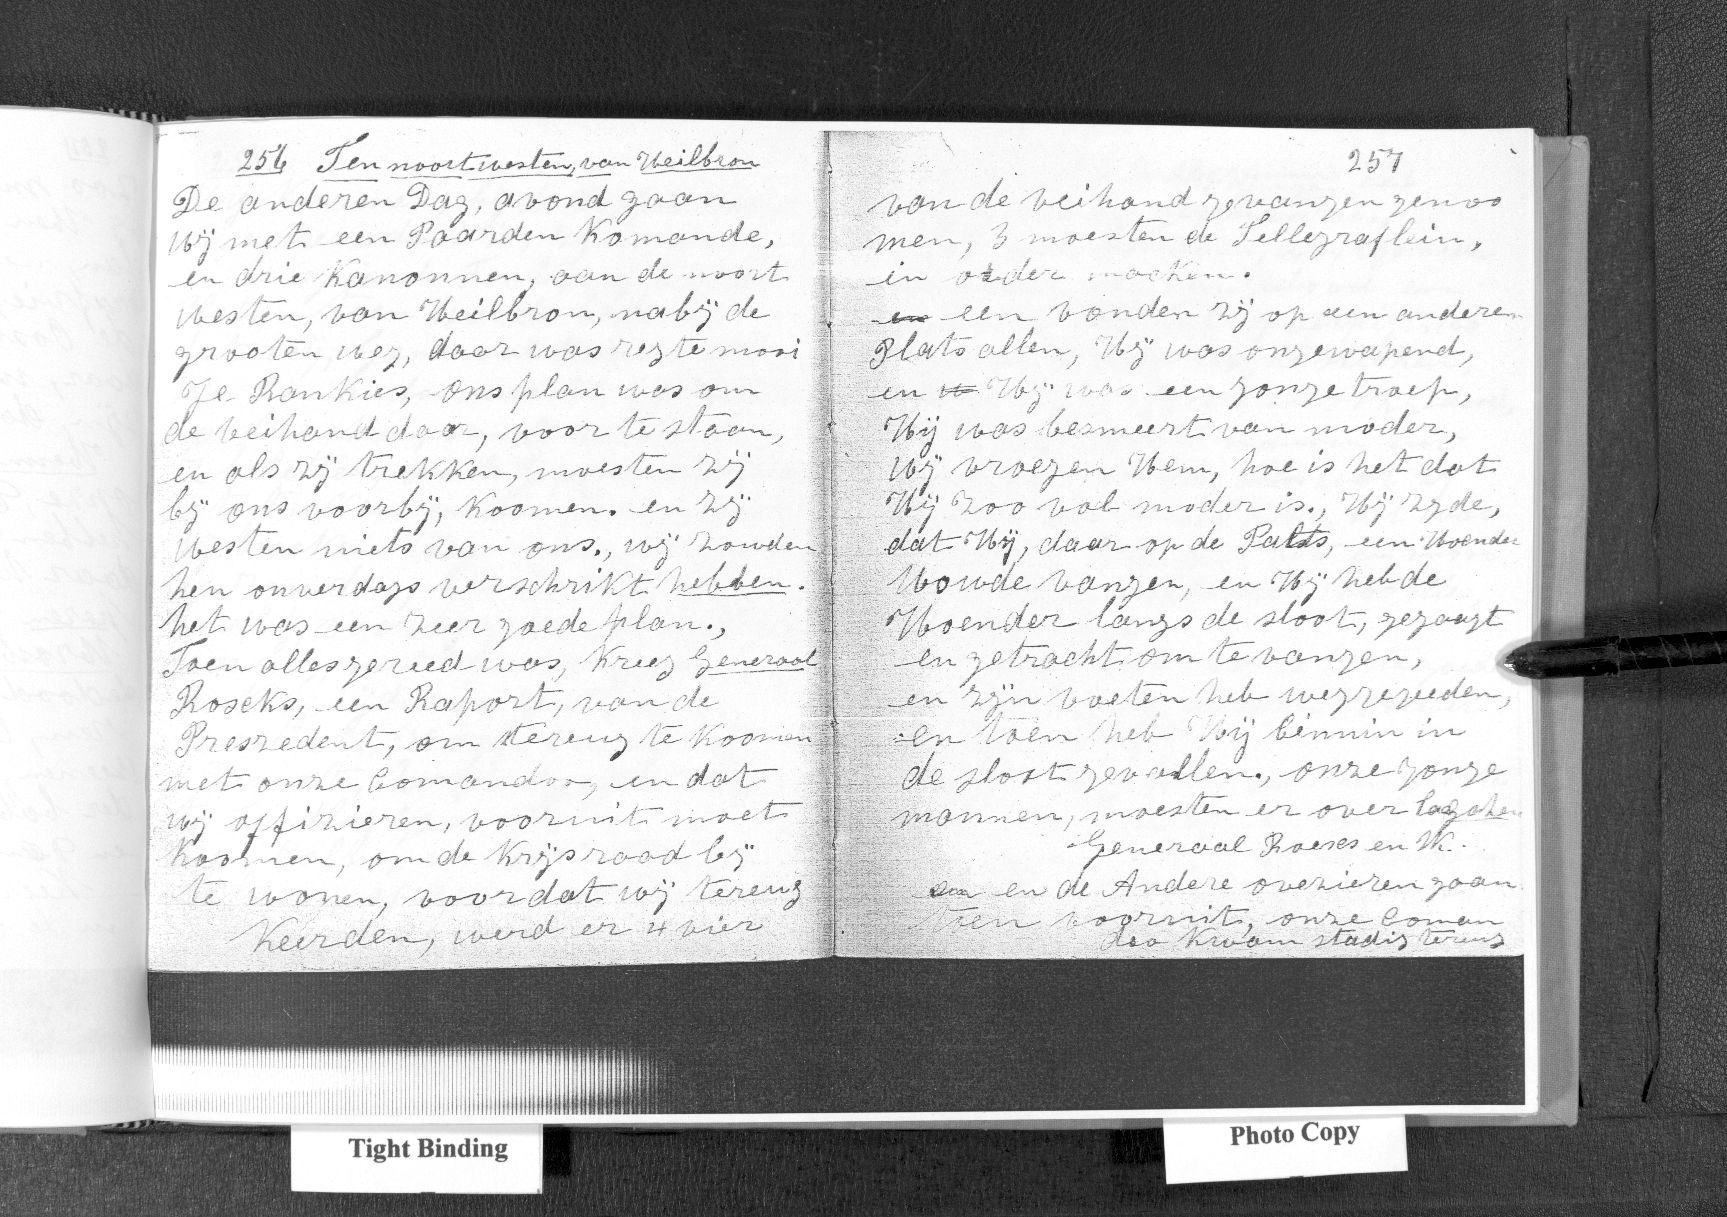 256 Ten noortwesten, van Heilbron
De anderen Dag, avond gaan
wij met een Paarden Komande,
en drie Kanonnen, aan de noort
westen, van Heilbron, nabij de
grooten weg, daar was regte mooi
Je Rankies, ons plan was om
de veihand daar, voor te staan,
en als zij trekken, moesten zij
bij ons voorbij, Koomen. en zij
westen niets van ons., wij zouden
hen onverdags verschrikt hebben.
het was een zeer goede plan.,
Toen alles gereed was, Kreeg Generaal
Roseks, een Raport, van de
Presredent, om tereug te Koomen
met onze Comandoo, en dat
wij offizieren, vooruit moet
Koomen, om de Krijsraad bij
te wonen, voordat wij tereug
Keerden, werd er 4 vier
257
van de veihand gevangen genoo
men, 3 moesten de Tellegraflein,
in order maeken.
een vonden zij op een anderen
Plats allen, Hij was ongewapend,
en Hij was een jonge troep,
Hij was besmeert van moder,
wij vroegen Hem, hoe is het dat
Hij zoo vol moder is., Hij zyde,
dat Hij, daar op de Palts, een Hoender
Wowde vangen, en Hij heb de
Hoender langs de sloot, gejaagt
en getracht om te vangen,
en zijn voeten heb weggegeeden,
en toen heb Hij binnin in
de sloot gevallen., onze jonge
mannen, moesten er over lagchen
Generaal Roexes en Ik.
en de Andere ovezieren gaan
toen vooruit, onze Coman
doo Kwam stadig tereug
Tight Binding
Photo Copy